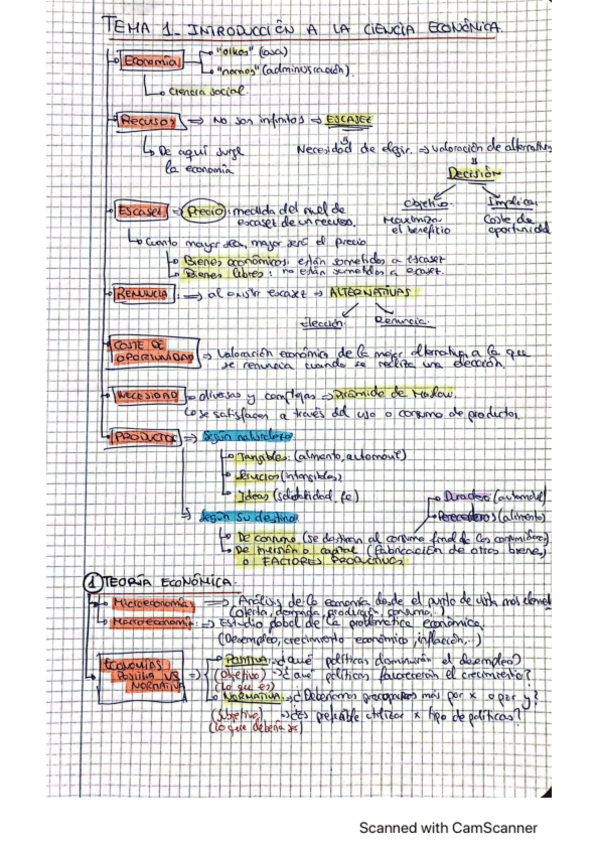 TEMA 1_ INTRODUCCIÓN A LA CIENCIA ECONÓMICA.
Economía → "oikos" (casa)
→ "nomos" (administración).
Ciencia social.
Recursos ⇒ No son infinitos ⇒ ESCASEZ
De aquí surge la economía
Necesidad de elegir. ⇒ valoración de alternativas
Decisión
Objetivo Implica
Maximizar el beneficio
Coste de oportunidad
Escasez ⇒ Precio: medida del nivel de escasez de un recurso.
Cuanto mayor sea, mayor será el precio
Bienes económicos: están sometidos a escasez
Bienes libres: no están sometidos a escasez.
RENUNCIA: ⇒ al existir escasez ⇒ ALTERNATIVAS
Elección Renuncia.
COSTE DE OPORTUNIDAD ⇒ Valoración económica de la mejor alternativa a la que
se renuncia cuando se realiza una elección.
NECESIDAD diversas y complejas ⇒ Pirámide de Maslow.
se satisfacen a través del uso o consumo de productos
PRODUCTOS ⇒ según naturaleza
Tangibles: (alimento, automóvil)
Servicios (intangibles)
Ideas (solidaridad, fe)
⇒ según su destino
Duradero (automóvil)
Perecederos (alimento)
De consumo (se destinan al consumo final de los consumidores)
De inversión o capital (fabricación de otros bienes)
o FACTORES PRODUCTIVOS
1 TEORÍA ECONÓMICA.
Microeconomía ⇒ Análisis de la economía desde el punto de vista más
(oferta, demanda, producción, consumo...)
Macroeconomía: ⇒ Estudio global de la problemática económica.
(Desempleo, crecimiento económico, inflación,..)
ECONOMÍAS POSITIVA VS NORMATIVA ⇒ POSITIVA: ¿qué políticas disminuirán el desempleo?
(Objetivo) ¿qué políticas favorecerán el crecimiento?
(lo que es)
NORMATIVA: ¿Deberíamos preocuparnos más por x o por y?
(Subjetivo) ¿es preferible utilizar x tipo de políticas?
(lo que debería ser)
Scanned with CamScanner